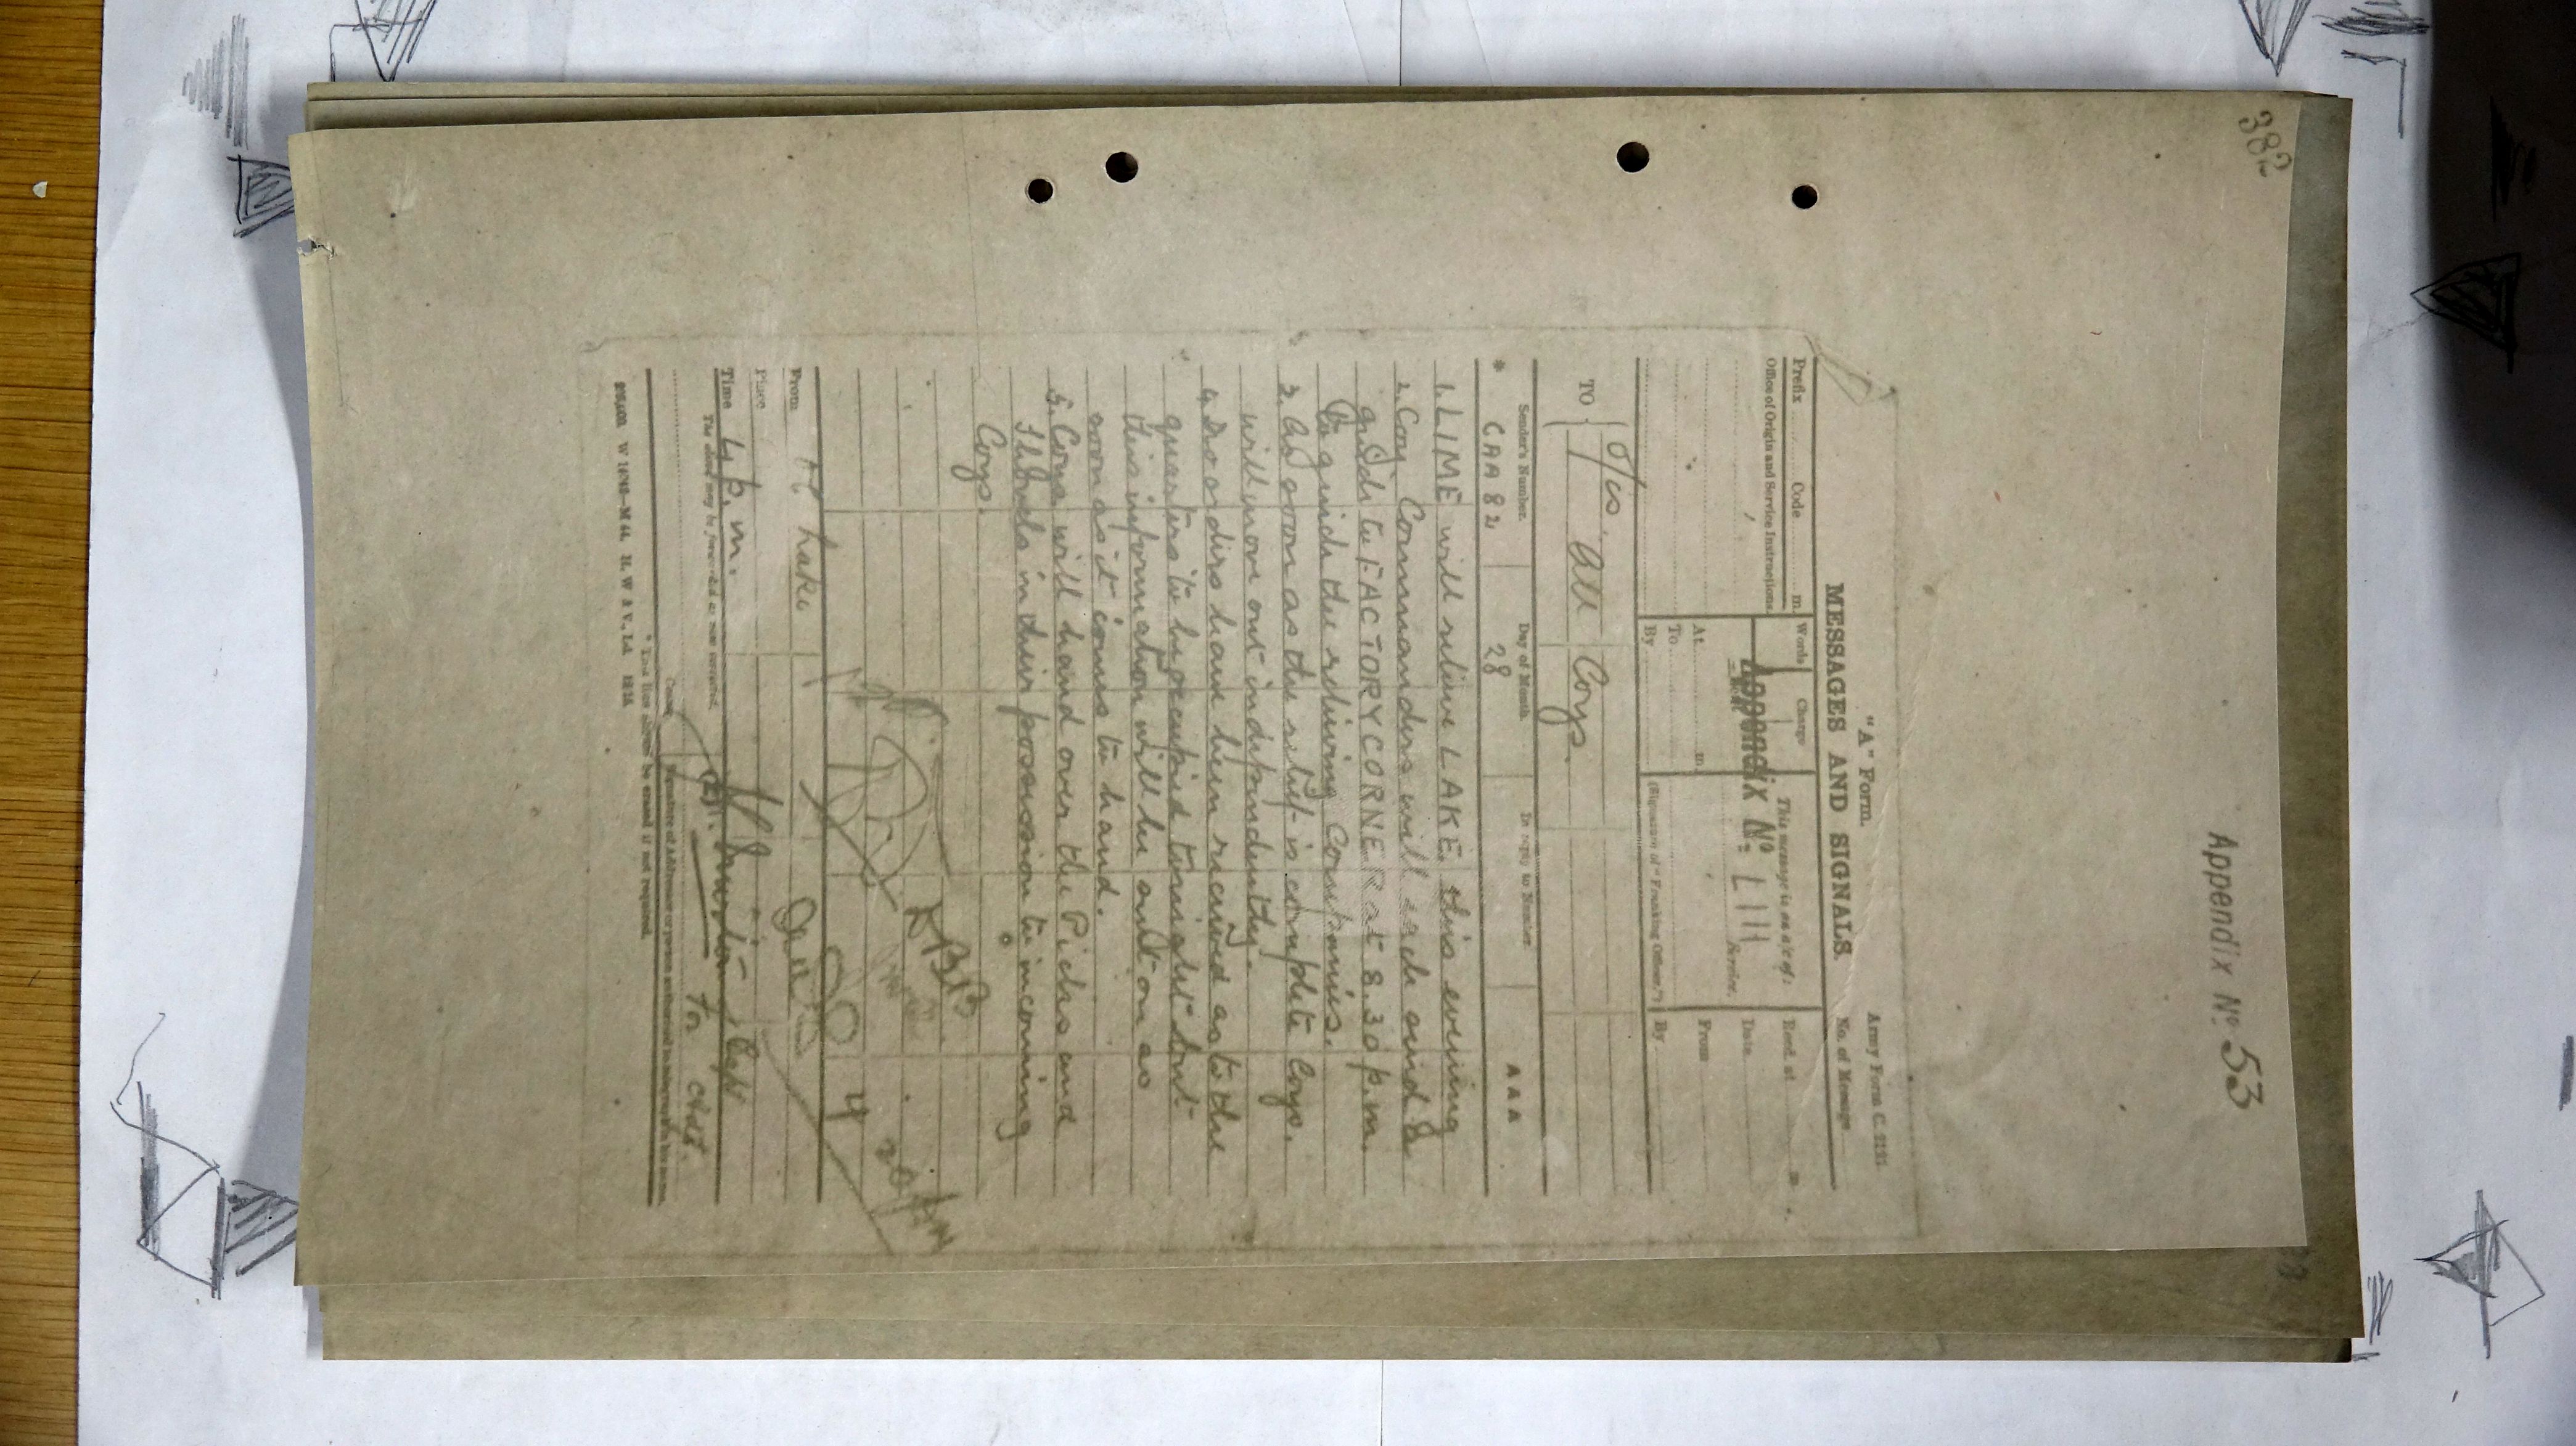 382
Appendix No. 53
"A" Form.
Army Form C. 2121
MESSAGES AND SIGNALS.
No. of Message
Prefix Code m.
Words
Charge
This message is on a/c of:
Recd. at m.
Office of Origin and Service Instructions.
Appendix No. LIII
Service.
Date
At m.
To
By
From
(Signature of "Franking Officer.")
By
TO
O/C's
All Coys.
Sender's Number.
Day of Month.
In reply to Number.
AAA
* CAA 82
28
1. LIME will relieve LAKE this evening
2. Coy Commanders will each send 8
guides to FACTORY CORNER at 8.30 p.m.
to guide the relieving Companies.
3. As soon as the relief is complete Coys.
will move out independently.
4. No orders have been received as to the
quarters to be occupied tonight but
this information will be sent on as
soon as it comes to hand.
5. Coys will hand over the Picks and
Shovels in their possession to incoming
Coys.
From
Lake
Place
Time 4 p.m.
The above may be forwarded as now corrected.
(Z).
Capt
for Adjt.
Censor.
Signature of Addressor or person authorised to telegraph in his name.
* This line should be erased if not required.